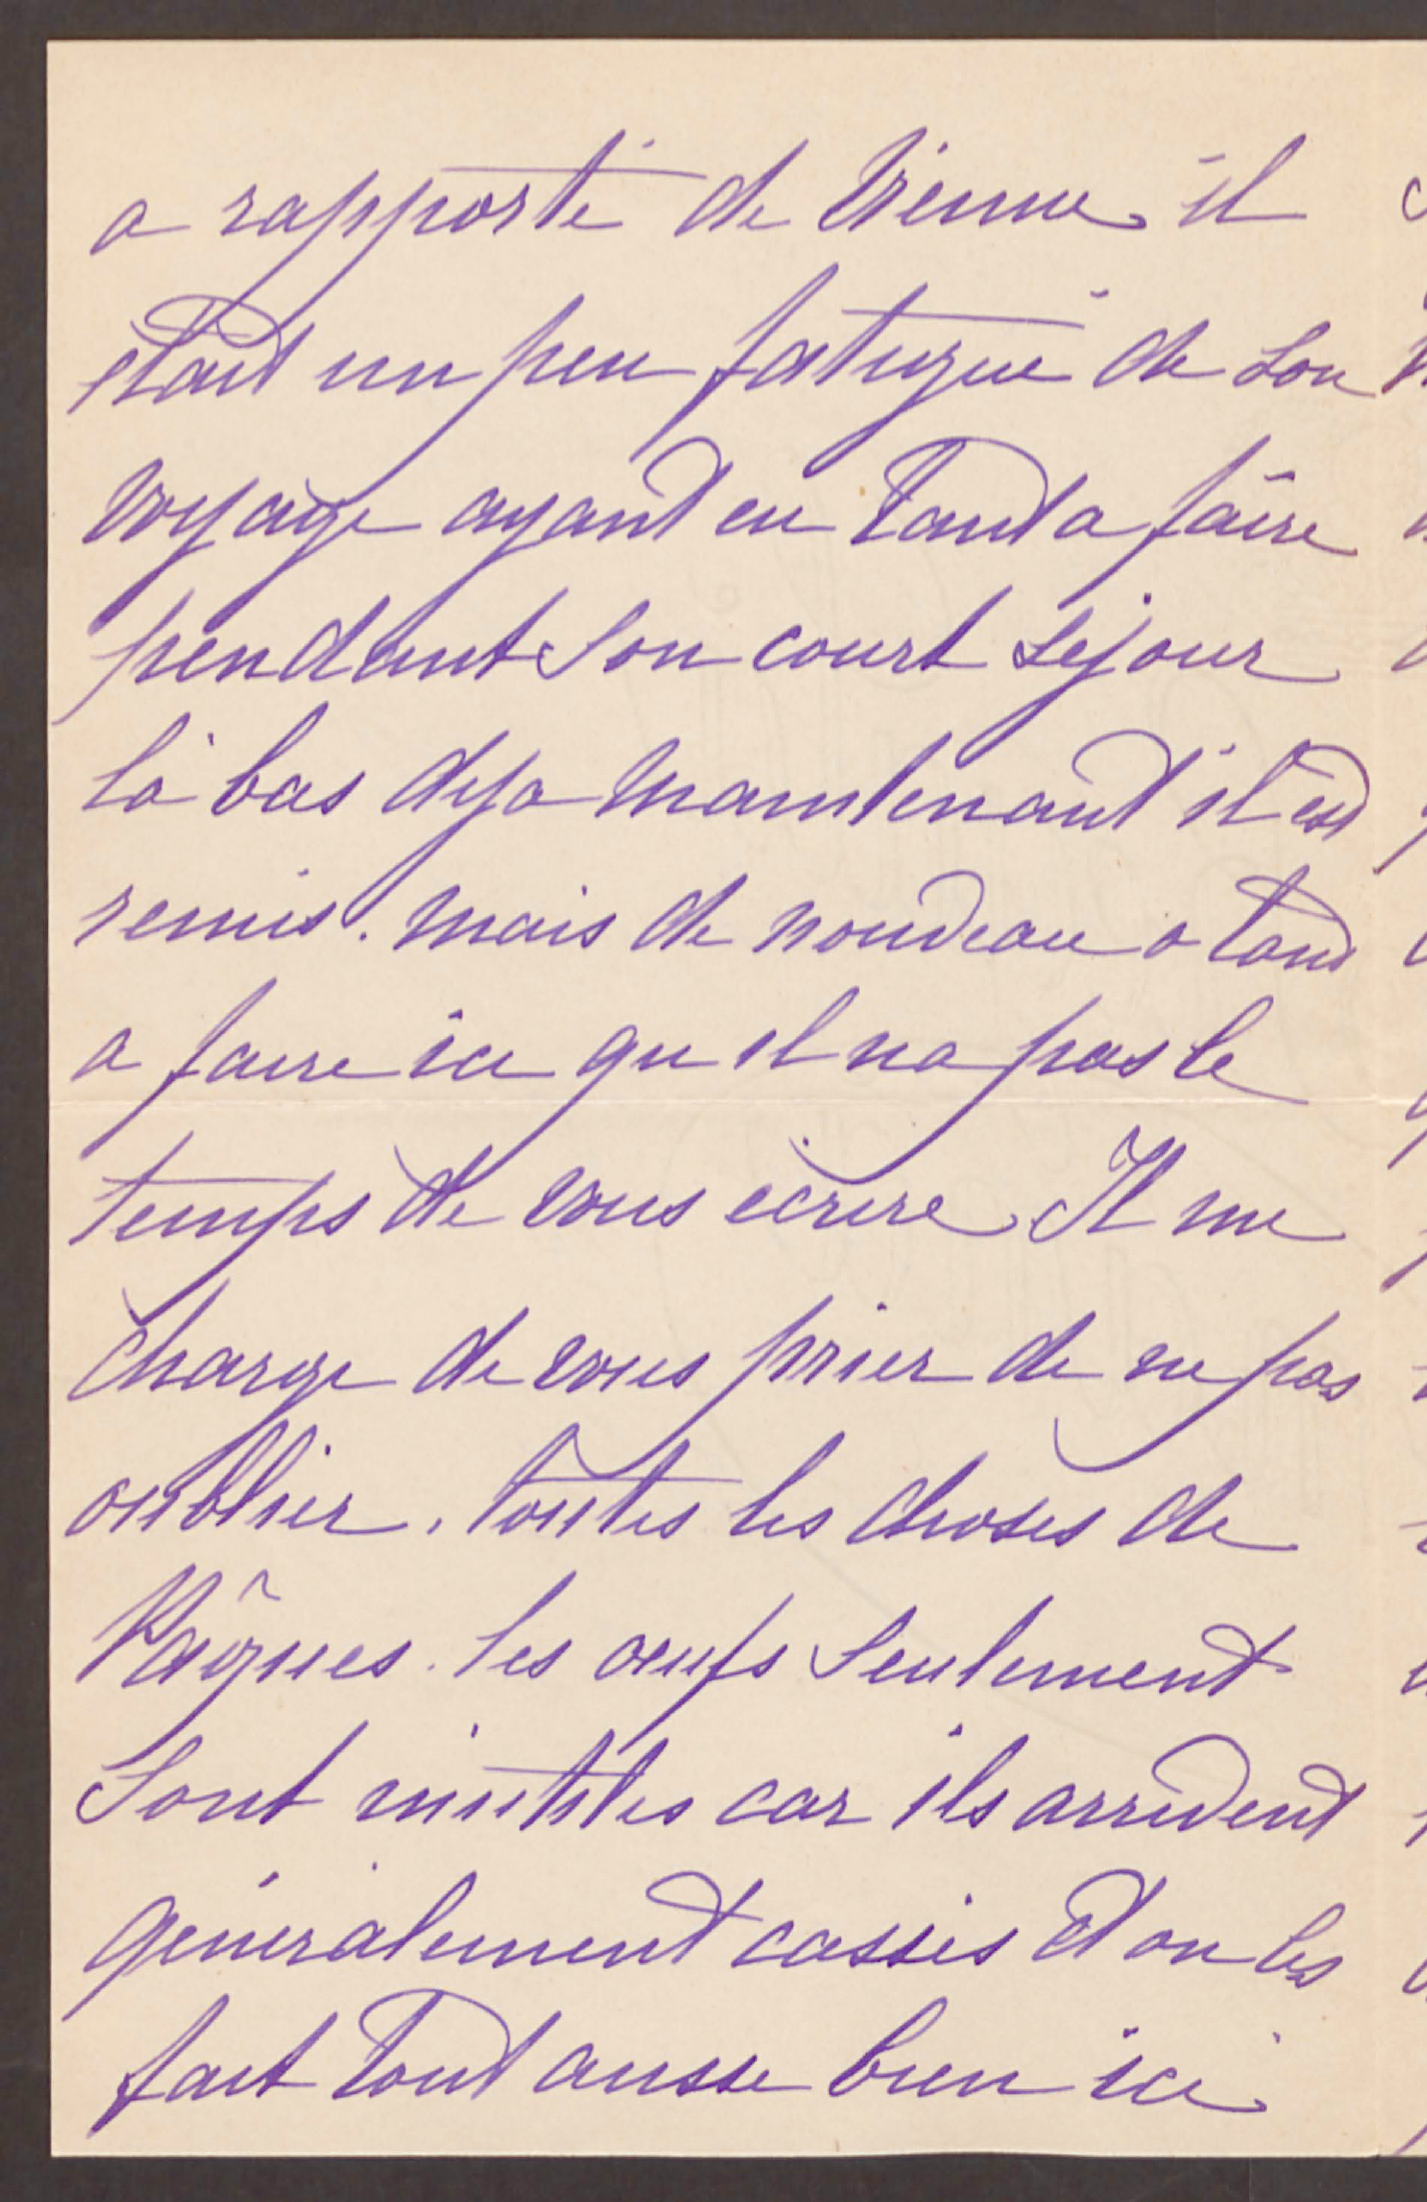 a rapporté de Vienne il
était un peu fatigué de son
voyage ayant eu tant a faire
pendant son court sejour
là bas deja maintenant il est
remis. mais de nouveau a tant
a faire ici qu il na pas le
temps de vous écrire Il me
charge de vous prier de ne pas
oublier. toutes les choses de
Pâques. les œufs seulement
sont inutiles car ils arrivent
généralement cassés et on les
fait tout aussi bien ici